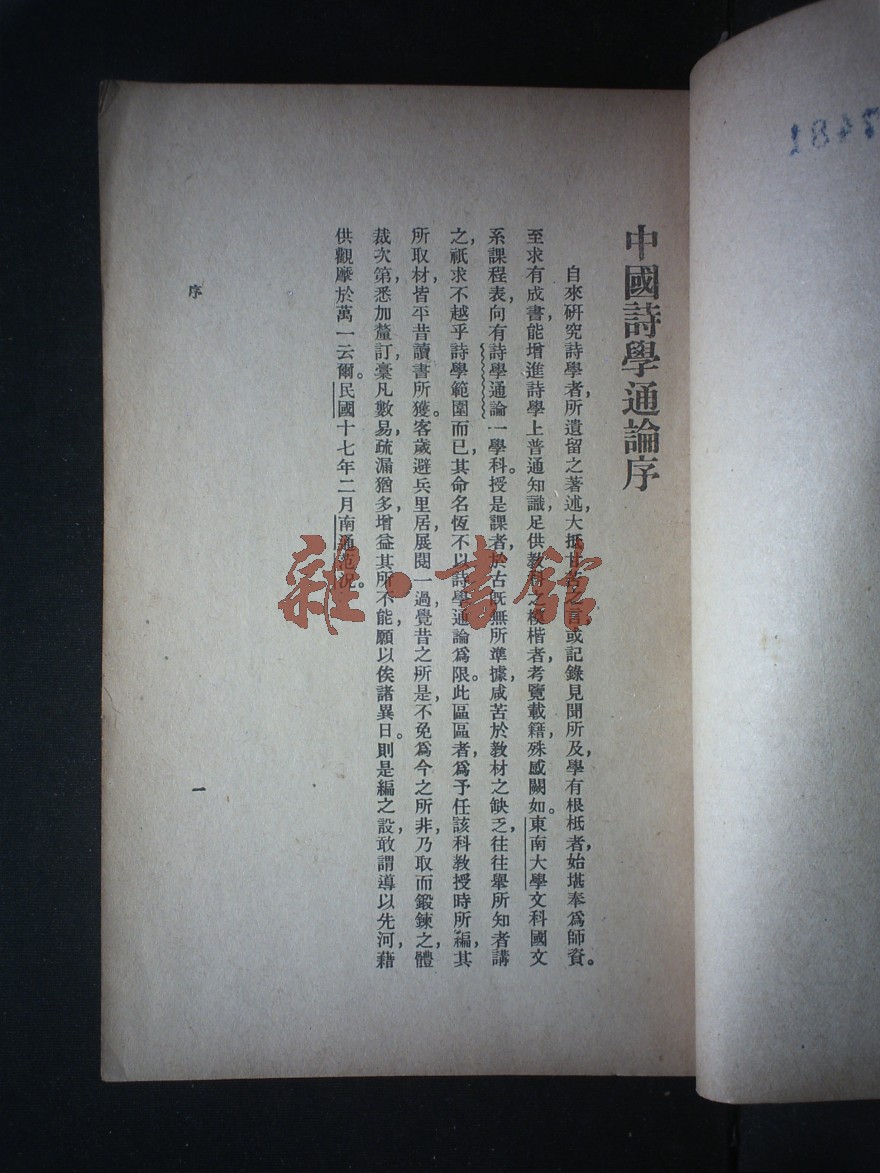 中國詩學通論序
自來研究詩學者，所遺留之著述，大抵甘苦之言，或記錄見聞所及，學有根柢者，始堪奉爲師資。
至求有成書能增進詩學上普通知識，足供教科之模楷者，考覽載籍，殊感闕如。東南大學文科國文
系課程表，向有詩學通論一學科。授是課者，於古既無所準據，咸苦於教材之缺乏，往往舉所知者講
之，祇求不越乎詩學範圍而已，其命名恆不以詩學通論爲限。此區區者，爲予任該科教授時所編，其
所取材，皆平昔讀書所獲。客歲避兵里居，展閱一過，覺昔之所是，不免爲今之所非，乃取而鍛鍊之，體
裁次第，悉加釐訂，稾凡數易，疏漏猶多，增益其所不能，願以俟諸異日。則是編之設，敢謂導以先河，藉
供觀摩於萬一云爾。民國十七年二月南通范況。
序
一
雜·書館
481